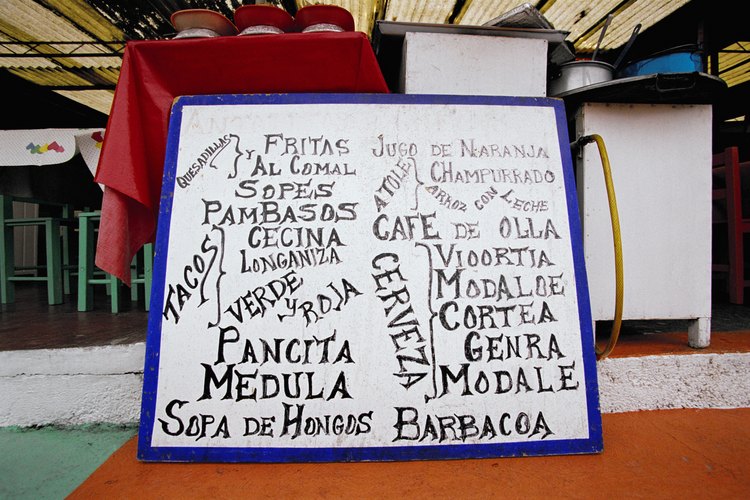 QUESADILLAS
FRITAS
Y AL COMAL
SOPES
PAMBASOS
TACOS
CECINA
LONGANIZA
VERDE
Y ROJA
PANCITA
MEDULA
SOPA DE HONGOS
JUGO DE NARANJA
ATOLE
CHAMPURRADO
ARROZ CON LECHE
CAFE DE OLLA
CERVEZA
VIOORTIA
MODALOE
CORTEA
GENRA
MODALE
BARBACOA